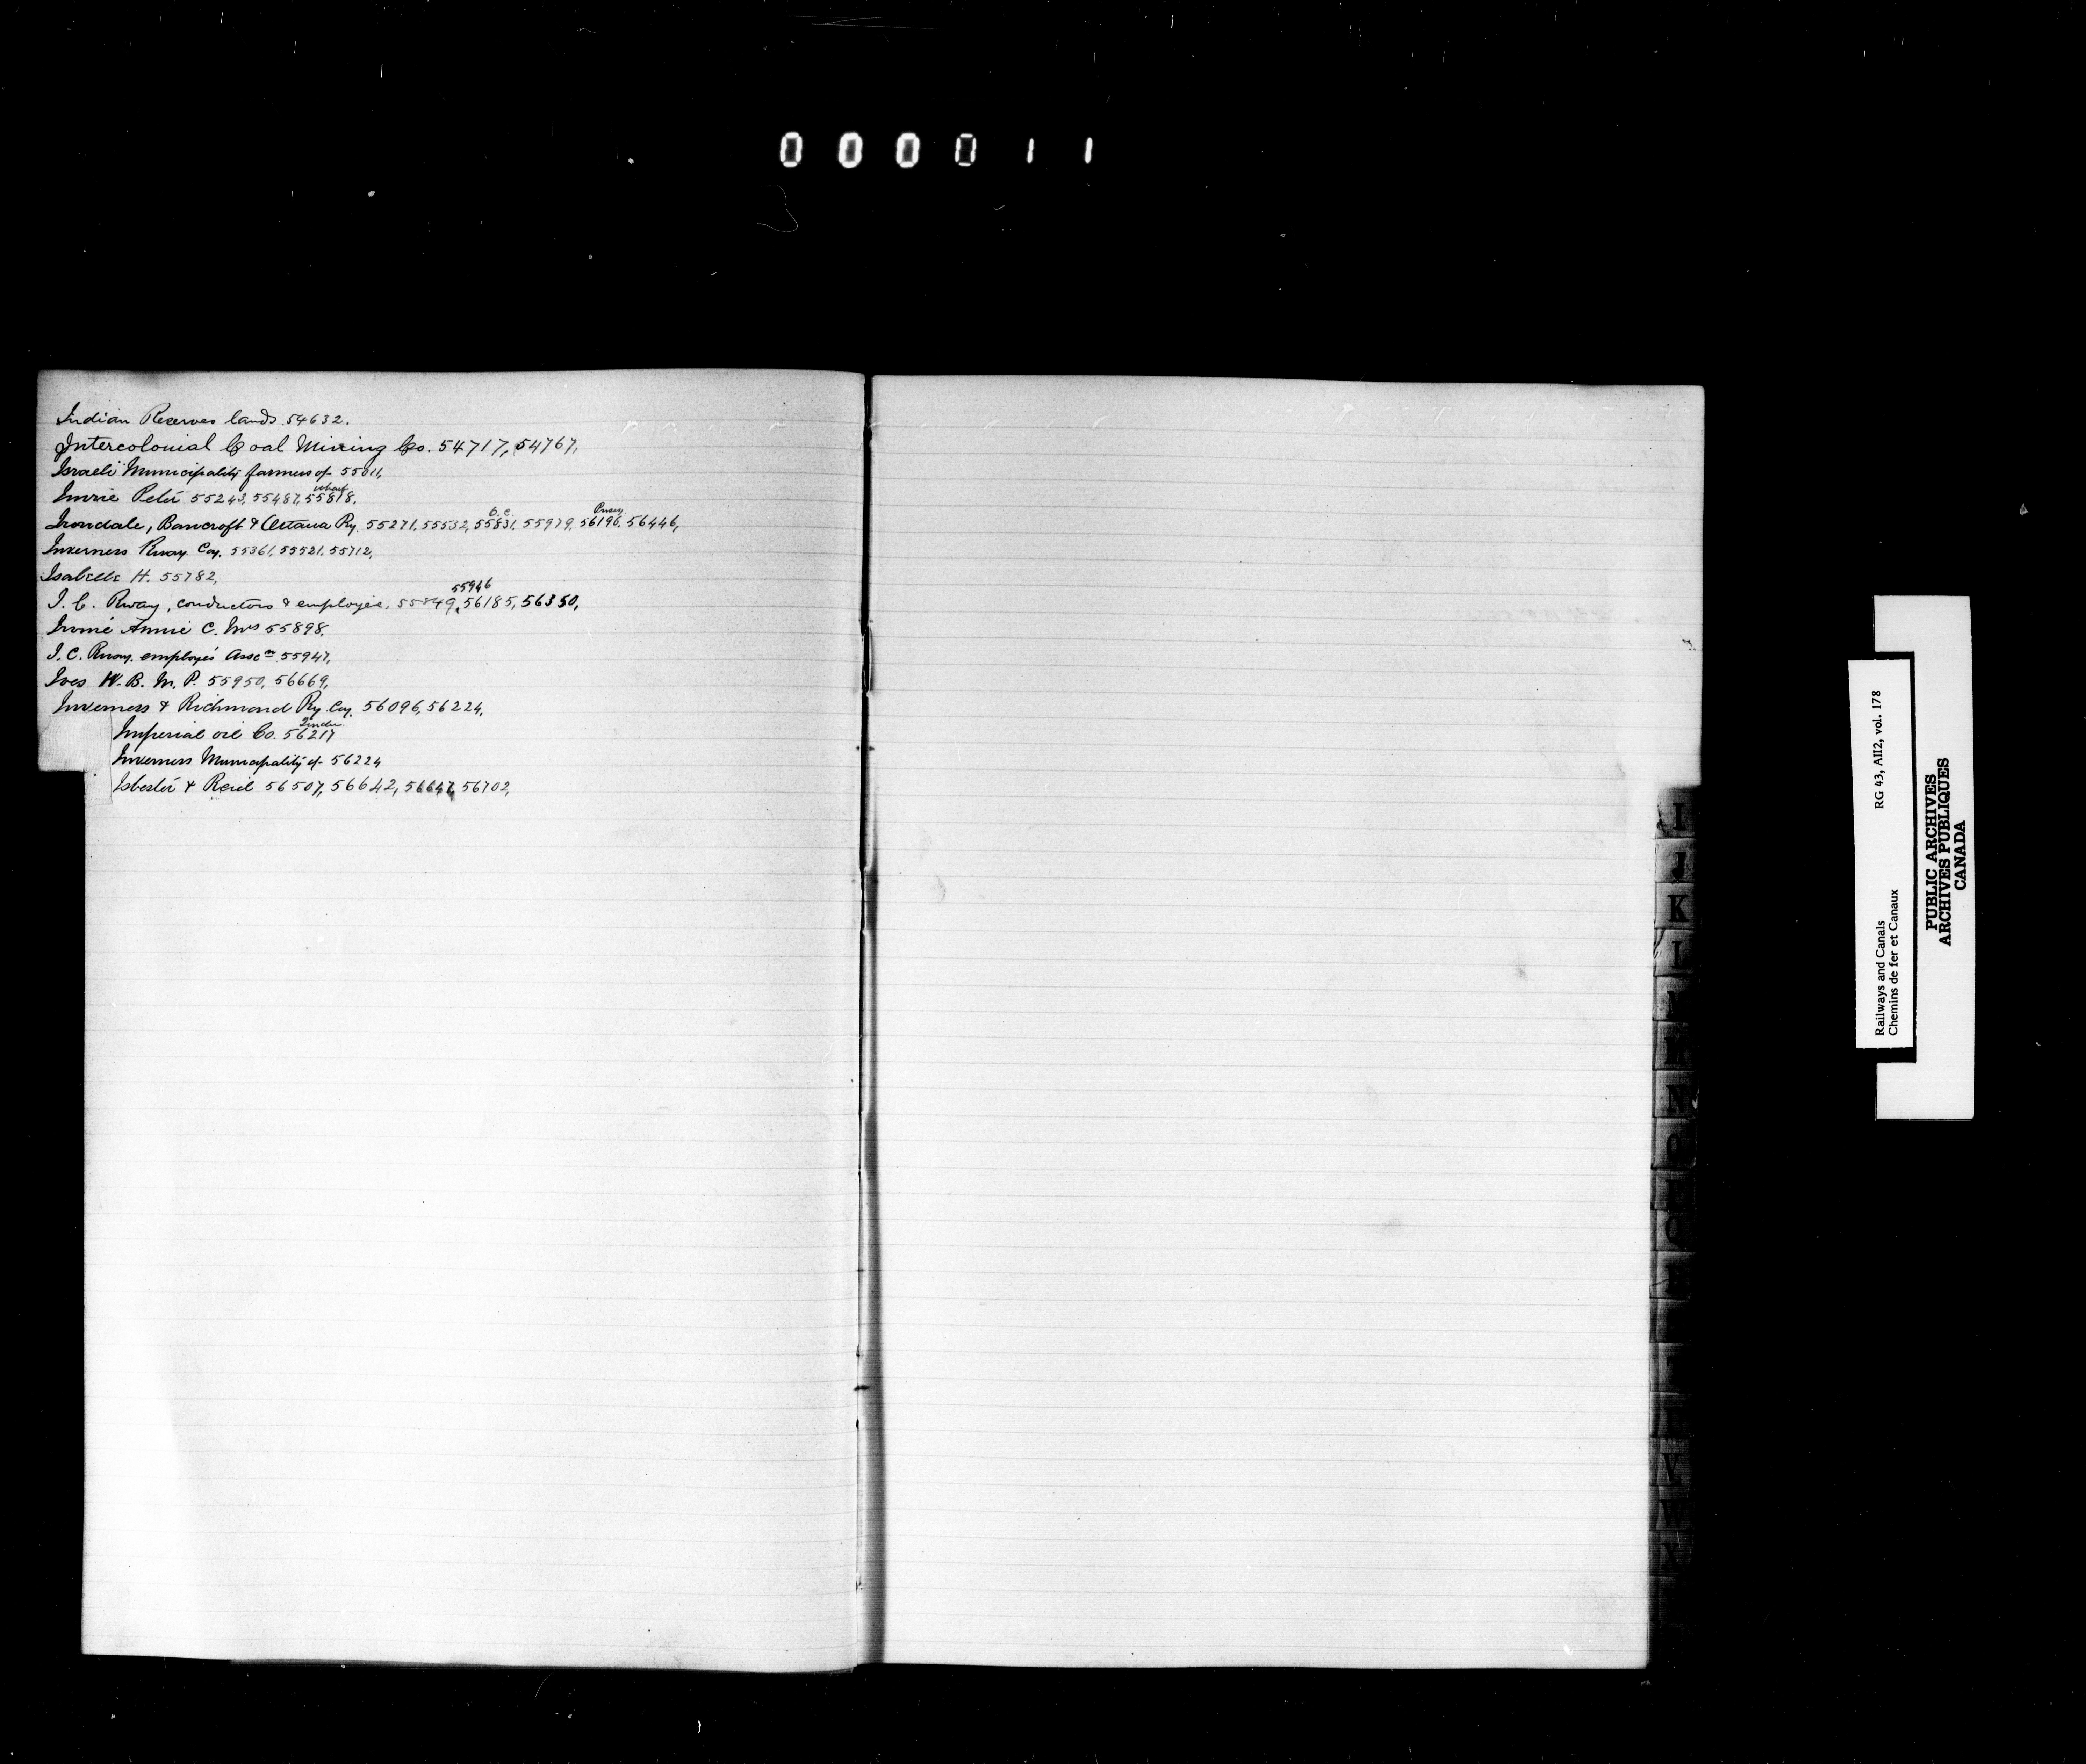 000011
Indian Reserves lands 54632.
Intercolonial Coal Mining Co. 54717, 54767,
Israeli Municipality farmers of 55011,
Imrie Peter 55243, 55487, 55818,
wharf
Irondale, Bancroft & Ottawa Ry. 55271, 55532, 55831, 55979, 56196, 56446,
O.C.
Inverness Rway Coy. 55361, 55521, 55712,
Isabelle H. 55782,
55946
I. C. Rway, conductors & employés, 55849, 56185, 56350,
Annie C. Mrs 55898.
I. C. Rway. employés Asscn 55947,
Ives W. B. M. P. 55950, 56669,
Inverness & Richmond Ry. Coy. 56096, 56224,
Imperial oil Co. 56217
Inverness Municipality of 56224
Isbester & Reid 56507, 56642, 56647, 56702,
I
J
K
L
M
N
O
Q
V
W
Railways and Canals RG 43, AII2, vol. 178
Chemins de fer et Canaux
PUBLIC ARCHIVES
ARCHIVES PUBLIQUES
CANADA